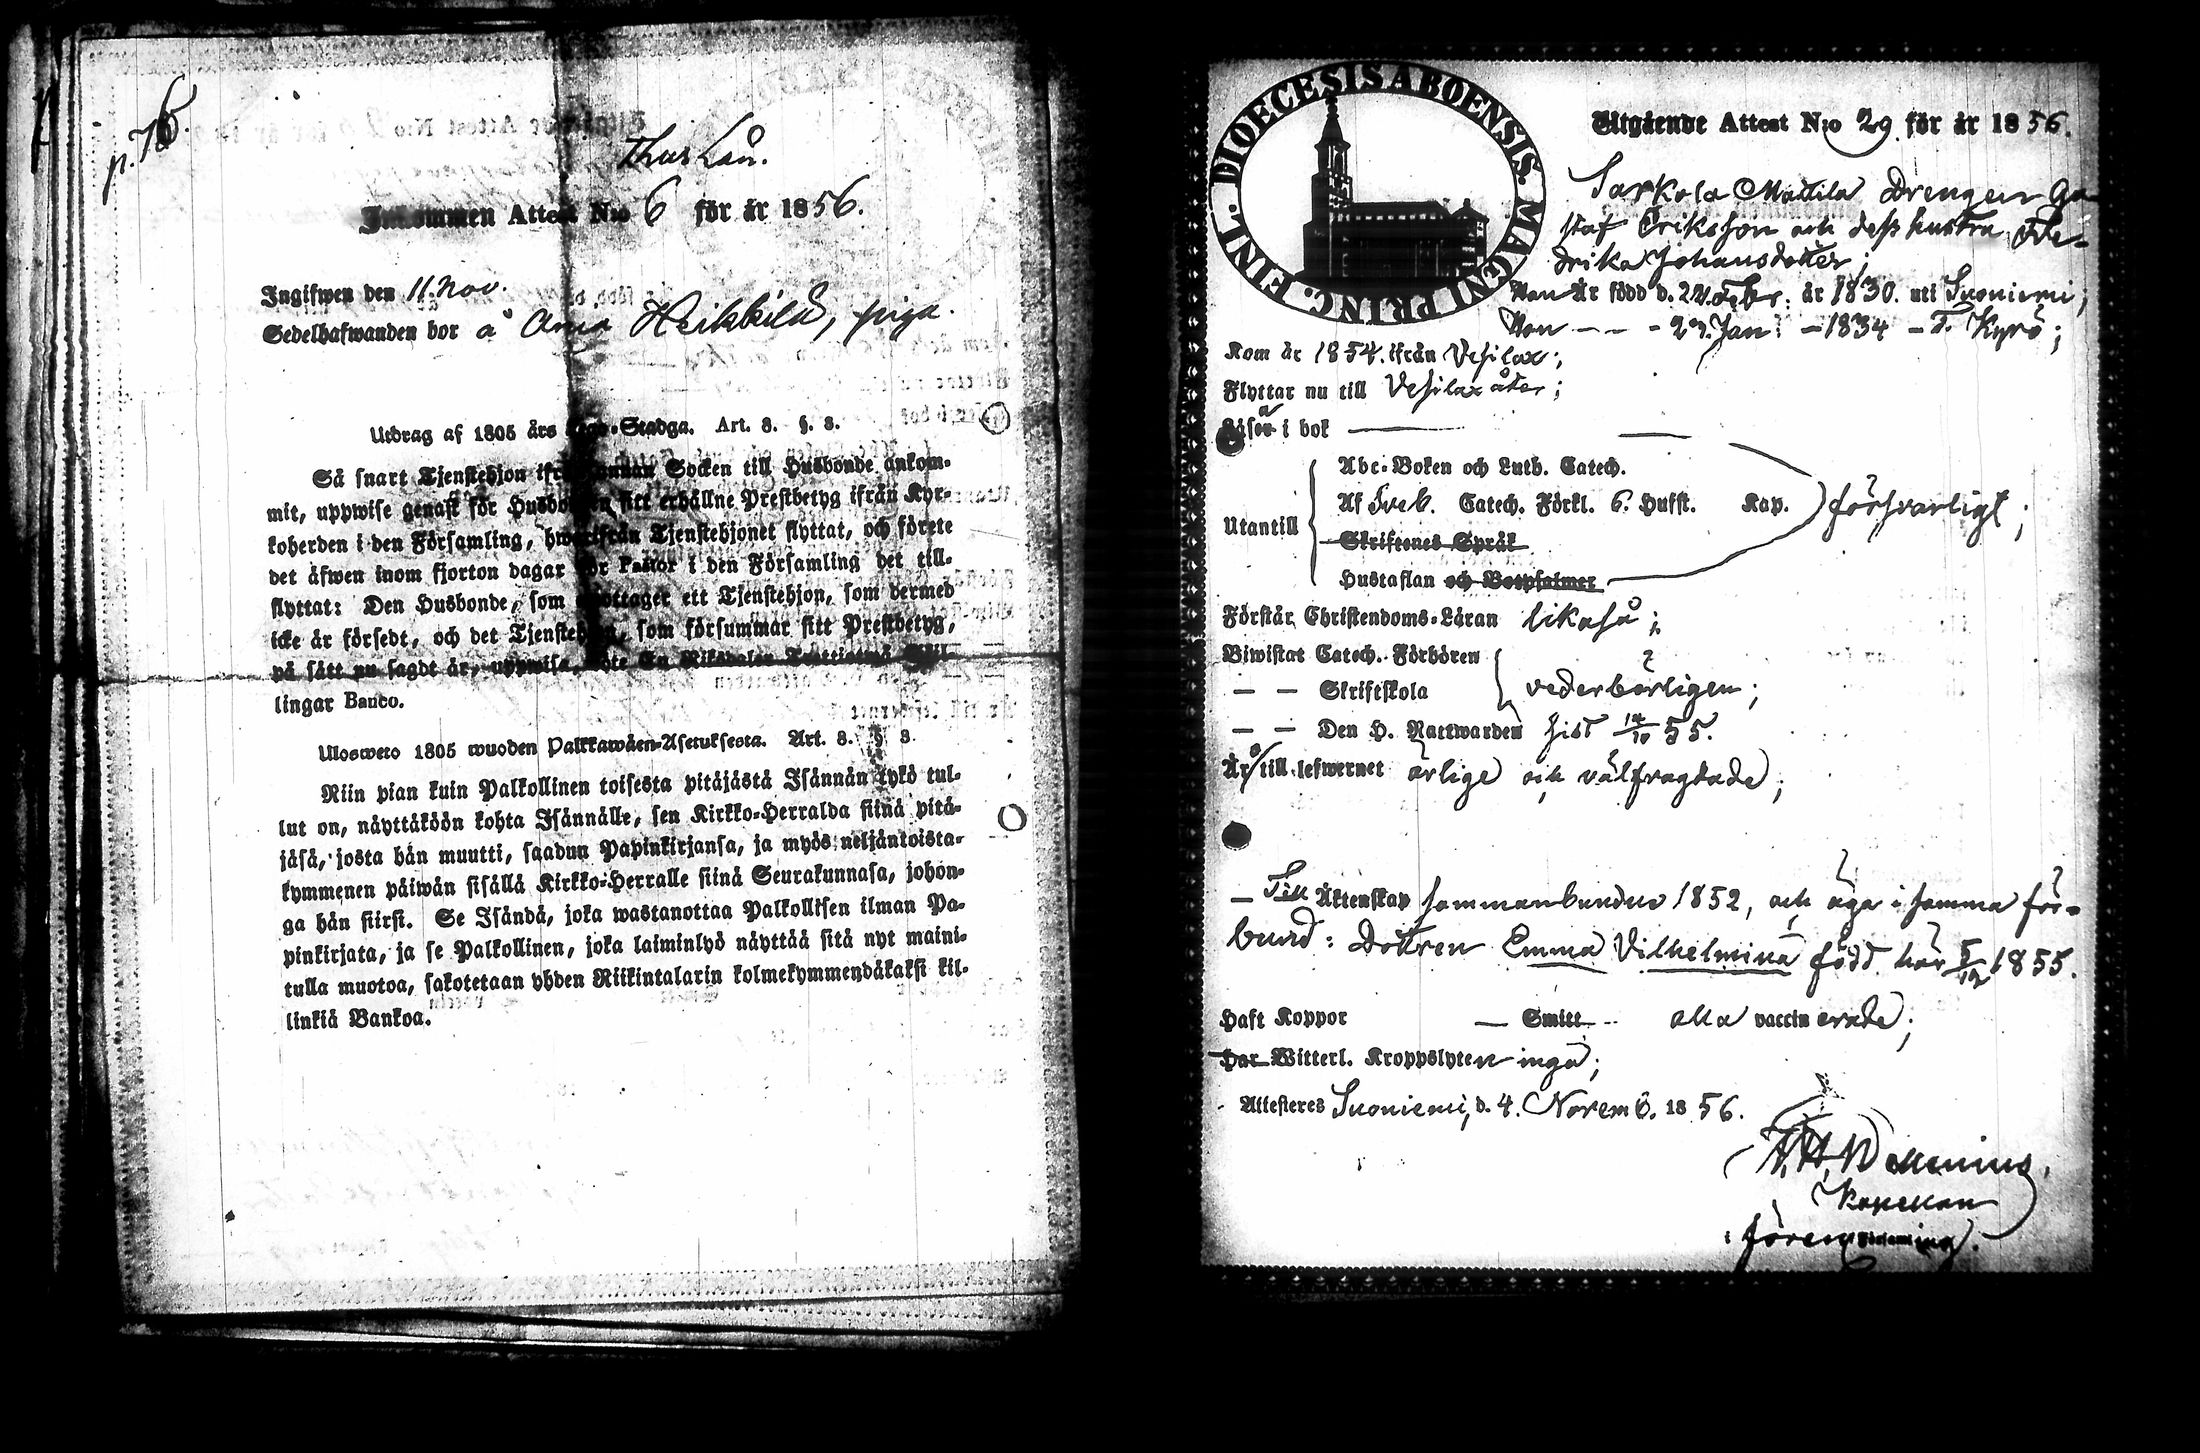 p. 76.
Inkommen Attest N:o 6 för år 1856.
Ingifwen den 11. Nov.
Sedelhafwanden bor å Heikkilä, piga.
Utdrag af 1805 års Lego-Stadga. Art. 8. §. 8.
Så snart Tjenstehjon ifrån annan Socken till Husbonde ankom-
mit, uppwise genast för Husbonden sitt erhållne Prestbetyg ifrån Kyr-
koherden i den Församling, hwarifrån Tjenstehjonet flyttat, och förete
det äfwen inom fjorton dagar för Pastor i den Församling det till-
flyttat: Den Husbonde, som emottager ett Tjenstehjon, som dermed
icke är försedt, och det Tjenstehjon, som försummar sitt Prestbetyg,
på sätt nu sagdt är, uppwisa, böte En Riksdaler Trettiotwå Skil-
lingar Banco.
Ulosweto 1805 wuoden Palkkawäen-Asetuksesta. Art. 8. § 8.
Niin pian kuin Palkollinen toisesta pitäjästä Isännän tykö tul-
lut on, näyttäköön kohta Isännälle, sen Kirkko-Herralda siinä pitä-
jäsä, josta hän muutti, saadun Papinkirjansa, ja myös neljäntoista-
kymmenen päiwän sisällä Kirkko-Herralle siinä Seurakunnasa, johon-
ga hän siirsi. Se Isändä, joka wastanottaa Palkollisen ilman Pa-
pinkirjata, ja se Palkollinen, joka laiminlyö näyttää sitä nyt maini-
tulla muotoa, sakotetaan yhden Riikintalarin kolmekymmendäkaksi kil-
linkiä Bankoa.
FINL. DIOECESIS ABOENSIS. MAGNI PRINC.
Utgående Attest N:o 29 för år 1856.
Sarkola Mattila Drengen Gu-
staf Eriksson och dess hustru Fre-
drika Johansdotter;
Han Är född d. 24. Febr. år 1830. uti Suoniemi;
Hon - - - 27. Jan: - 1834 - T. Kyrö;
Kom år 1854. ifrån Vesilax;
Flyttar nu till Vesilax åter;
Läser i bok
Utantill
Abc-Boken och Luth. Catech.
Af Sveb. Catech. Förkl. 6. Hufst. Kap. försvarligt;
Skriftenes Språk
Hustaflan och Botpsalmer
Förstår Christendoms-Läran likaså;
Biwistat Catech. Förhören
— — Skriftskola vederbörligen;
— — Den H. Nattwarden sist 14/10 55.
Är till lefwernet ärlige och välfrägdade;
— Till Äktenskap sammanbundne 1852, och äga i samma för-
bund: Dottren Emma Vilhelmina född här 5/12 1855.
Haft Koppor — Smitt - alla vaccinerade;
Har Witterl. Kroppslyten inga;
Attesteres Suoniemi, d. 4. Novemb. 1856.
Kapellan